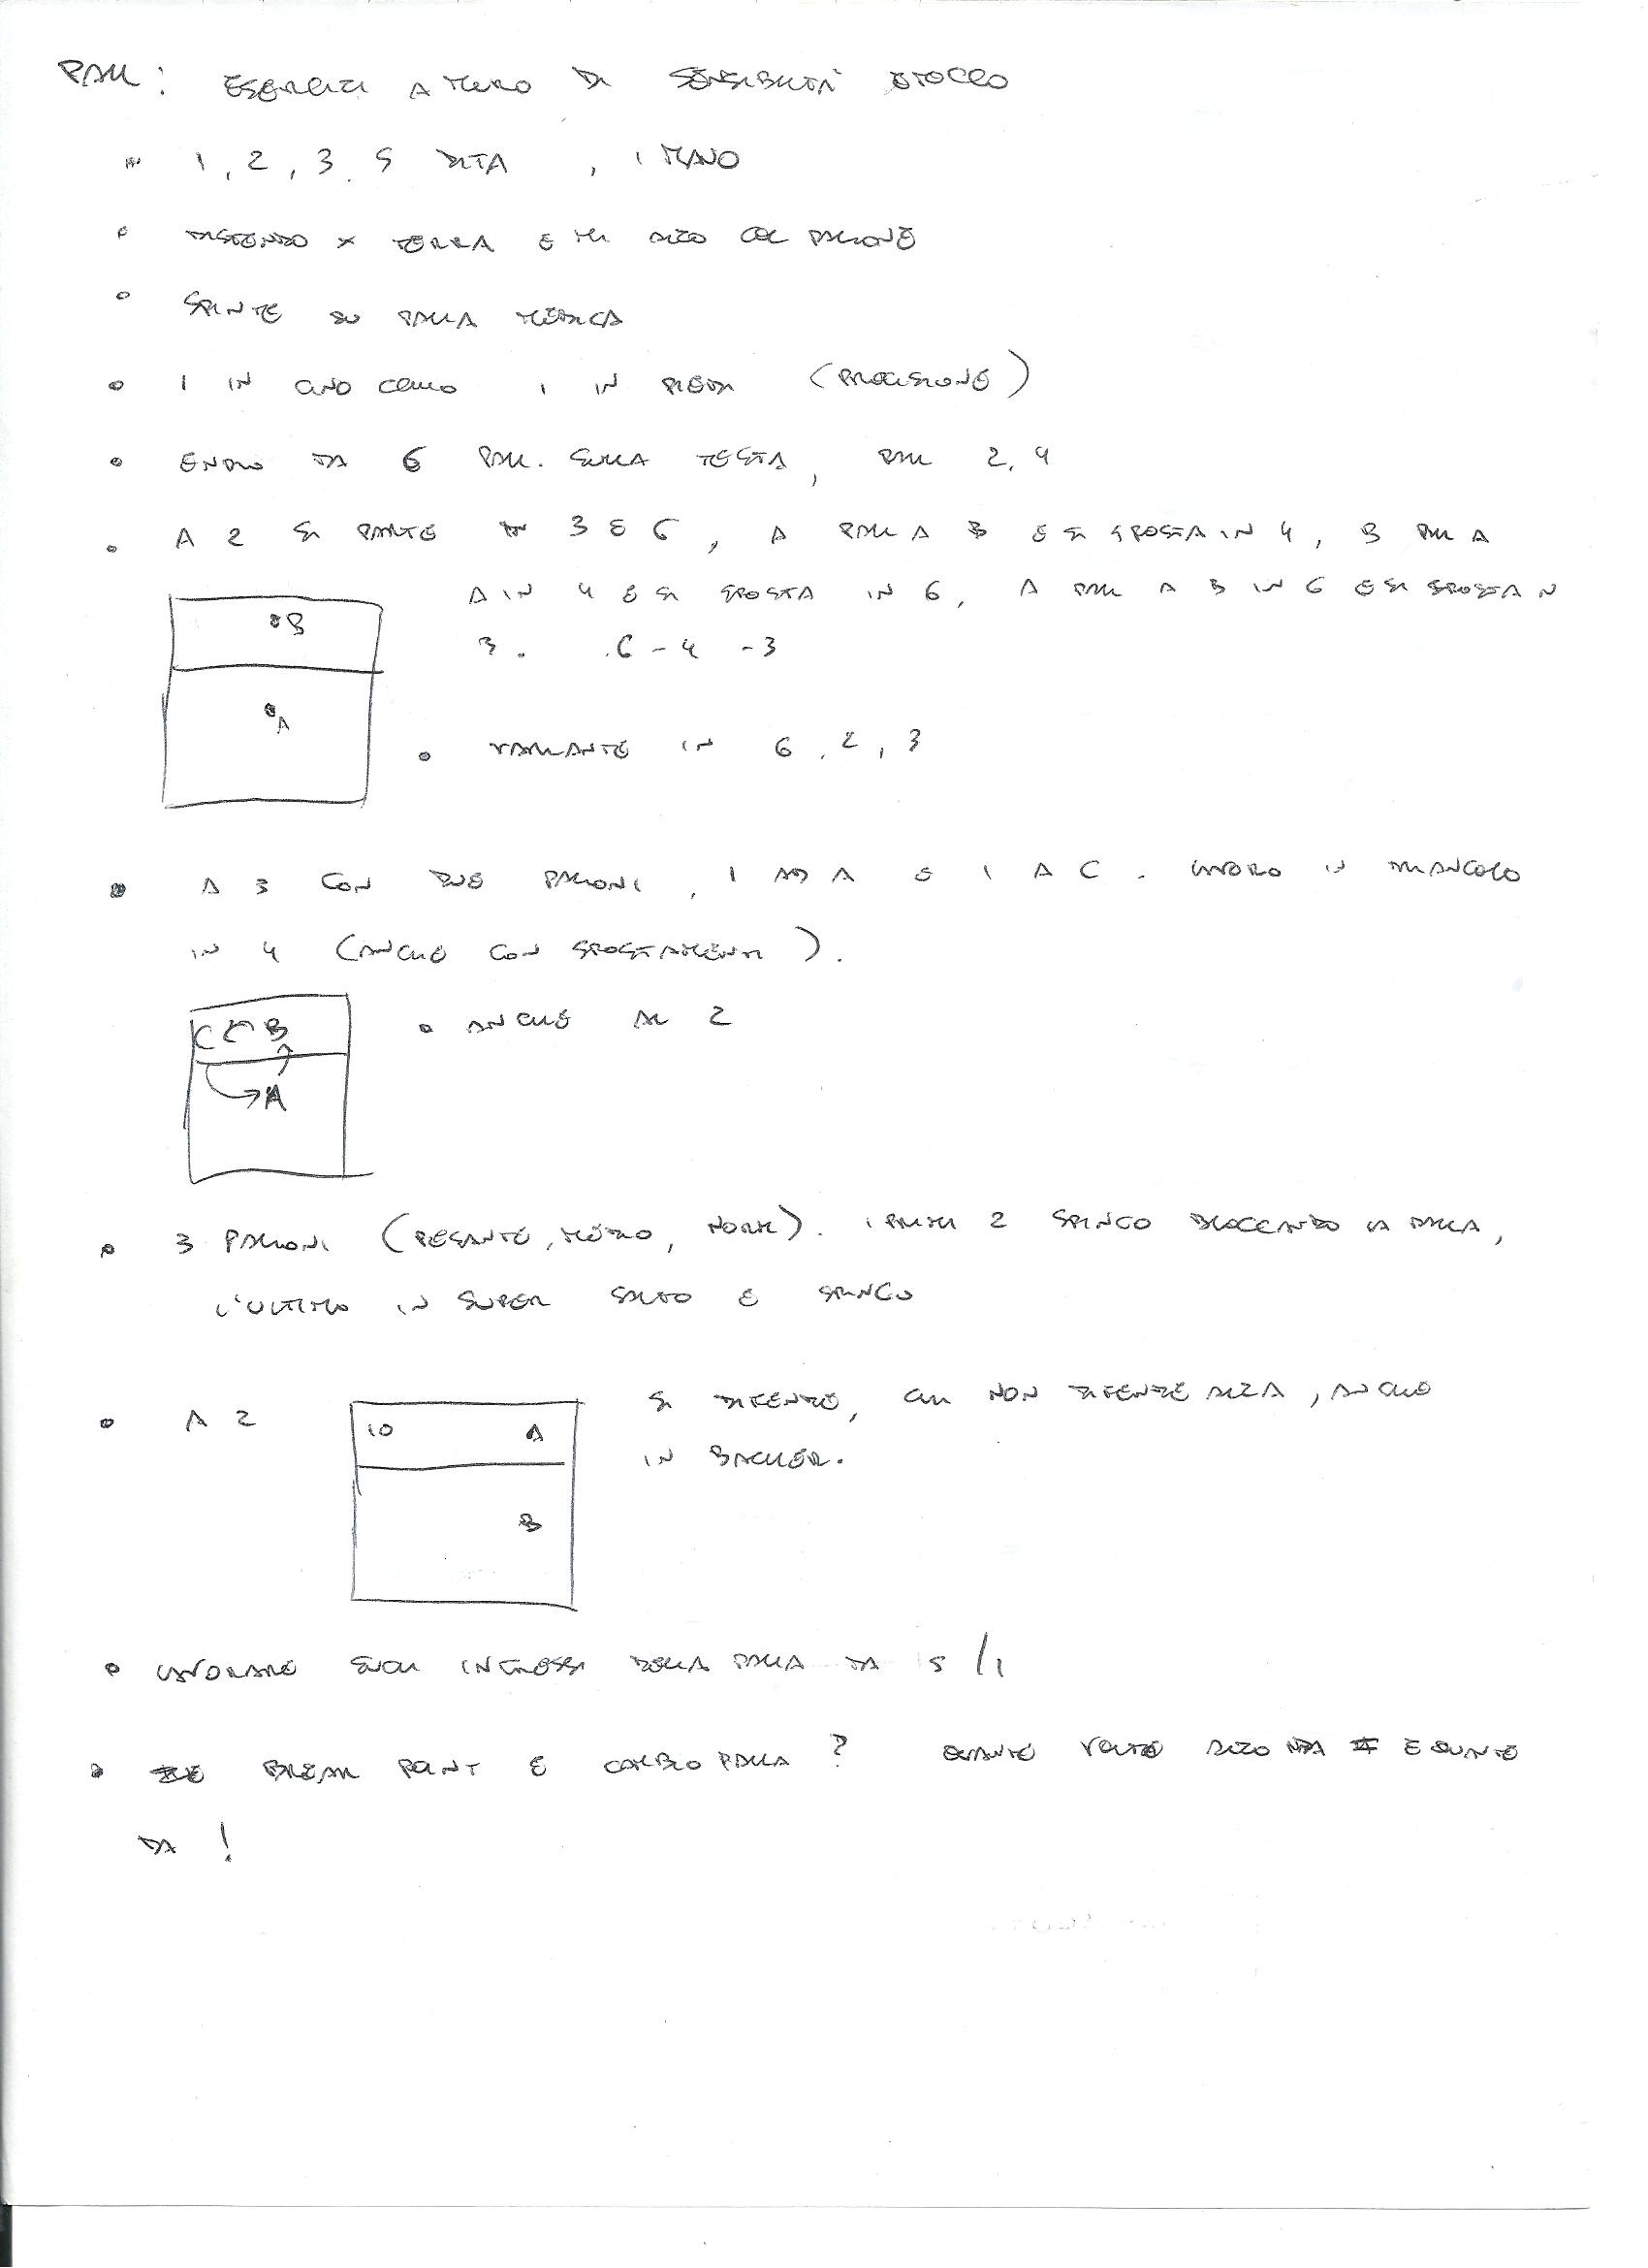 PALL: ESERCIZI A MURO DI SENSIBILITÀ TOCCO
1, 2, 3, 5 DITA, 1 MANO
DISTENDO X TERRA E MI ALZO COL PALLONE
SPINTE SU PALLA MEDICA
1 IN GINOCCHIO 1 IN PIEDI (PRECISIONE)
DA 6 PALL. SULLA TESTA, PALL 2, 4
A 2 SI PARTE IN 3 E 6, A PALL A B E SI SPOSTA IN 4, B PALL A
A IN 4 E SI SPOSTA IN 6, A PALL A B IN 6 E SI SPOSTA IN
3. 6 - 4 - 3
B
A
VARIANTE IN 6, 2, 3
A 3 CON DUE PALLONI, 1 AD A E 1 A C. LAVORO IN TRIANGOLO
IN 4 (ANCHE CON SPOSTAMENTI).
C C B
A
ANCHE DI 2
3 PALLONI (PESANTE, MEDIO, NORM). I PRIMI 2 SPINGO BLOCCANDO LA PALLA,
L'ULTIMO IN SUPER SALTO E SPINGO
A 2
IO A
B
SI DIFENDE, CHI NON DIFENDE ALZA, ANCHE
IN BAGHER.
LAVORARE SUGLI INGRESSI DELLA PALLA DA 5/1
BREAK POINT E CAMBIO PALLA? QUANTE VOLTE ALZO DA # E QUANTE
DA !